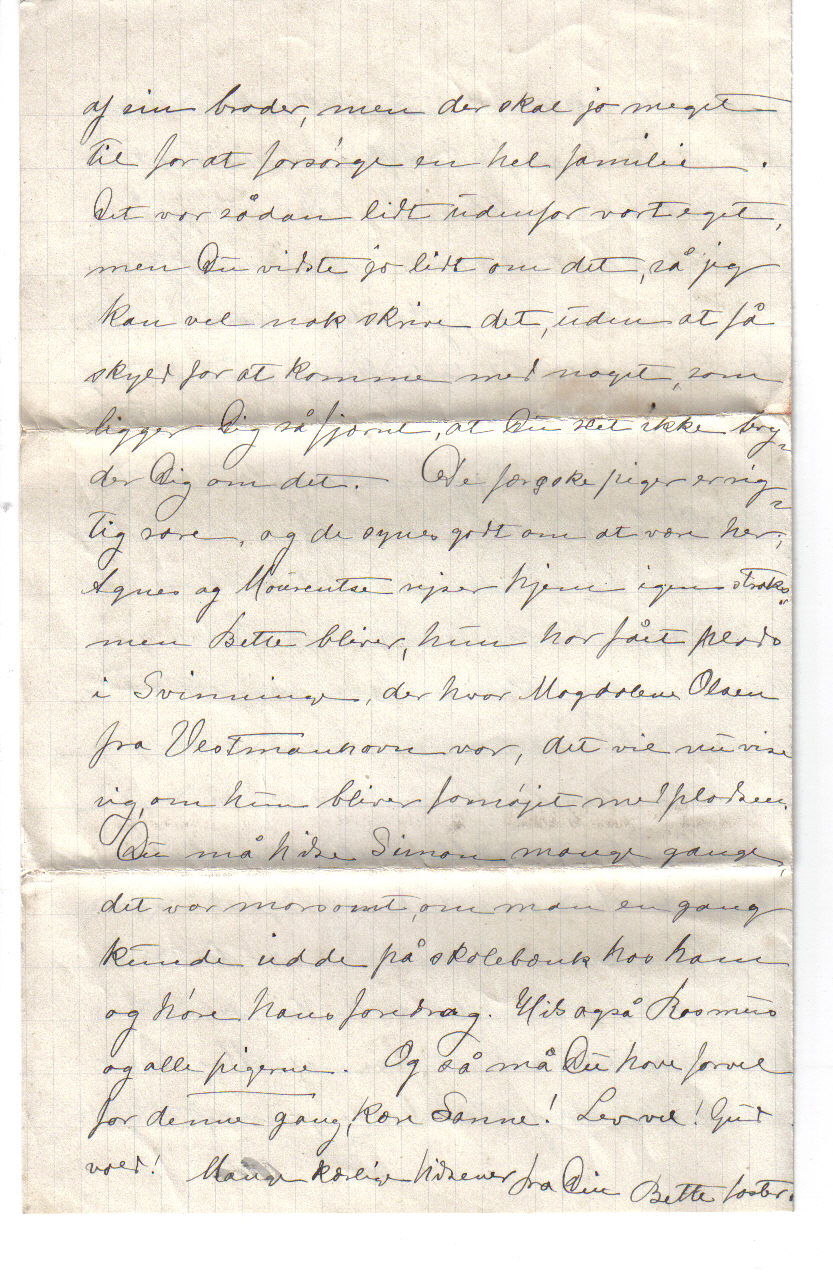 af sin broder, men der skal jo meget
til for at forsørge en hel familie.
Det var sådan lidt udenfor vort eget,
men Du vidste jo lidt om det, så jeg
kan vel nok skrive det, uden at få
skyld for at komme med noget, som
ligger Dig så fjernt, at Du slet ikke bry-
der Dig om det. De færøske piger er rig-
tig søre, og de synes godt om at være her;
Agnes og Mourentse rejser hjem igen straks
men Bette bliver, hun har fået plads
i Svinninge, der hvor Magdalene Olsen
fra Vestmanhavn var, det vil nu vise
sig, om hun bliver fornøjet med pladsen.
Du må hilse Simon mange gange,
det var morsomt, om man en gang
kunde sidde på skolebænk hos ham
og høre hans foredrag. Hils også Rasmus
og alle pigerne. Og så må Du have farvel
for denne gang, kære Sanne! Lev vel! Gud
vær!
Mange kærlige hilsener fra Din Bette faster.